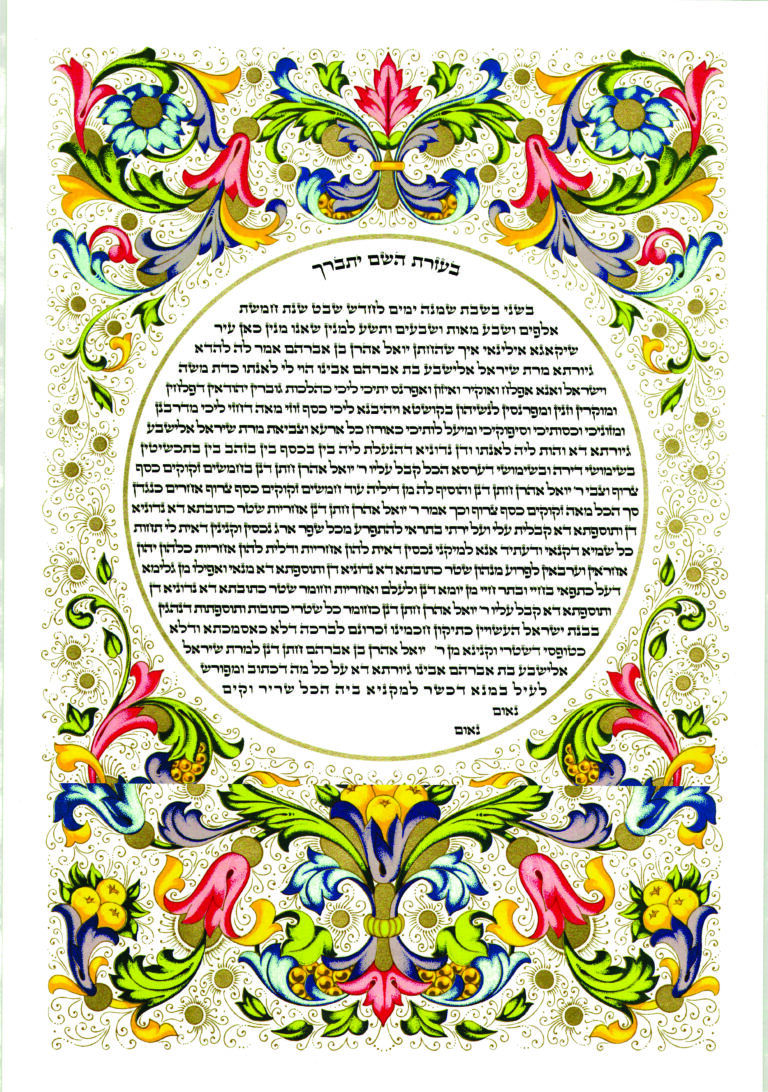 בעזרת השם יתברך
בשני בשבת שמנה ימים לחדש שבט שנת חמשת
אלפים ושבע מאות ושבעים ותשע למנין שאנו מנין כאן עיר
שיקאגא אילינאי איך שהחתן יואל אהרן בן אברהם אמר לה להדא
גיורתא מרת שיראל אלישבע בת אברהם אבינו הוי לי לאנתו כדת משה
וישראל ואנא אפלח ואוקיר ואיזון ואפרנס יתיכי ליכי כהלכות גוברין יהודאין דפלחין
ומוקרין וזנין ומפרנסין לנשיהון בקושטא ויהיבנא ליכי כסף זוזי מאה דחזי ליכי מדרבנן
ומזוניכי וכסותיכי וסיפוקיכי ומיעל לותיכי כאורח כל ארעא וצביאת מרת שיראל אלישבע
גיורתא דא והות ליה לאנתו ודן נדוניא דהנעלת ליה בין בכסף בין בזהב בין בתכשיטין
בשימושי דירה ובשימושי דערסא הכל קבל עליו ר׳ יואל אהרן חתן דנן בחמשים זקוקים כסף
צרוף וצבי ר׳ יואל אהרן חתן דנן והוסיף לה מן דיליה עוד חמשים זקוקים כסף צרוף אחרים כנגדן
סך הכל מאה זקוקים כסף צרוף וכך אמר ר׳ יואל אהרן חתן דנן אחריות שטר כתובתא דא נדוניא
דן ותוספתא דא קבלית עלי ועל ירתי בתראי להתפרע מכל שפר ארג נכסין וקנינין דאית לי תחות
כל שמיא דקנאי ודעתיד אנא למיקני נכסין דאית להון אחריות ודלית להון אחריות כלהון יהון
אחראין וערבאין לפרוע מנהון שטר כתובתא דא נדוניא דן ותוספתא דא מנאי ואפילו מן גלימא
דעל כתפאי בחיי ובתר חיי מן יומא דנן ולעלם ואחריות וחומר שטר כתובתא דא נדוניא דן
ותוספתא דא קבל עליו ר׳ יואל אהרן חתן דנן כחומר כל שטרי כתובות ותוספתות דנהגין
בבנת ישראל העשויין כתיקון חכמינו זכרונם לברכה דלא כאסמכתא ודלא
כטופסי דשטרי וקנינא מן ר׳ יואל אהרן בן אברהם חתן דנן למרת שיראל
אלישבע בת אברהם אבינו גיורתא דא על כל מה דכתוב ומפורש
לעיל במנא דכשר למקניא ביה הכל שריר וקים
נאום
נאום